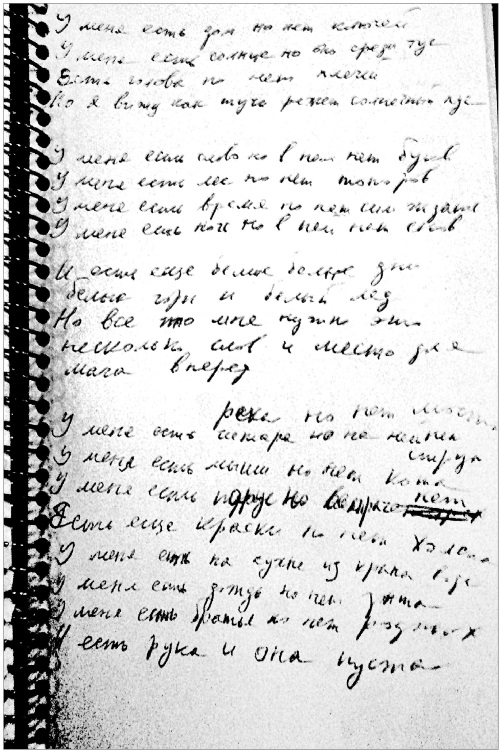 У меня есть дом но нет ключей
У меня есть солнце но оно среди туч
Есть голова но нет плечей
Но я вижу как туча режет солнечный луч
У меня есть слово но в нем нет букв
У меня есть лес но нет топоров
У меня есть время но нет сил ждать
У меня есть ночь но в ней нет снов
И есть еще белые белые дни
Белые горы и белый лед
Но все что мне нужно это
несколько слов и место для
шага вперед
река но нет моста
У меня есть гитара но на ней нет
струн
У меня есть мыши но нет кота
У меня есть парус но ветра нет
Есть еще краски но нет холста
У меня есть на кухне из крана вода
У меня есть дождь но нет зонта
У меня есть братья но нет родных
И есть рука и она пуста